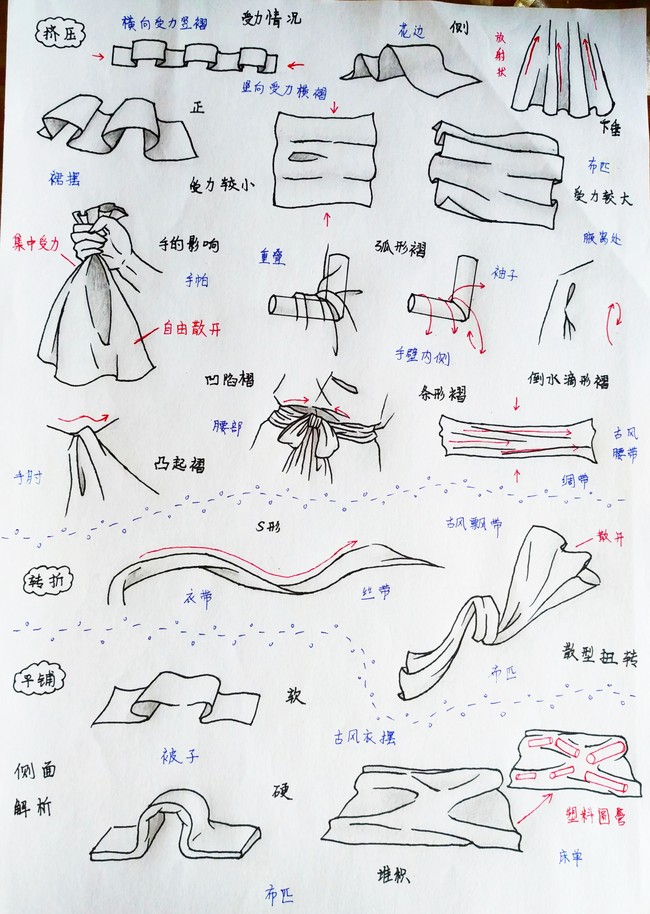 挤压
横向受力竖褶
受力情况
花边
侧
放射状
下垂
竖向受力横褶
正
裙摆
受力较小
布匹
受力较大
集中受力
手的影响
手帕
自由散开
重叠
弧形褶
袖子
手臂内侧
腋窝处
倒水滴形褶
凹陷褶
腰部
条形褶
古风
腰带
绸带
手肘
凸起褶
S形
古风飘带
转折
衣带
丝带
散开
布匹
散型扭转
平铺
软
被子
古风衣摆
侧面
解析
硬
布匹
堆积
塑料圆叠
床单